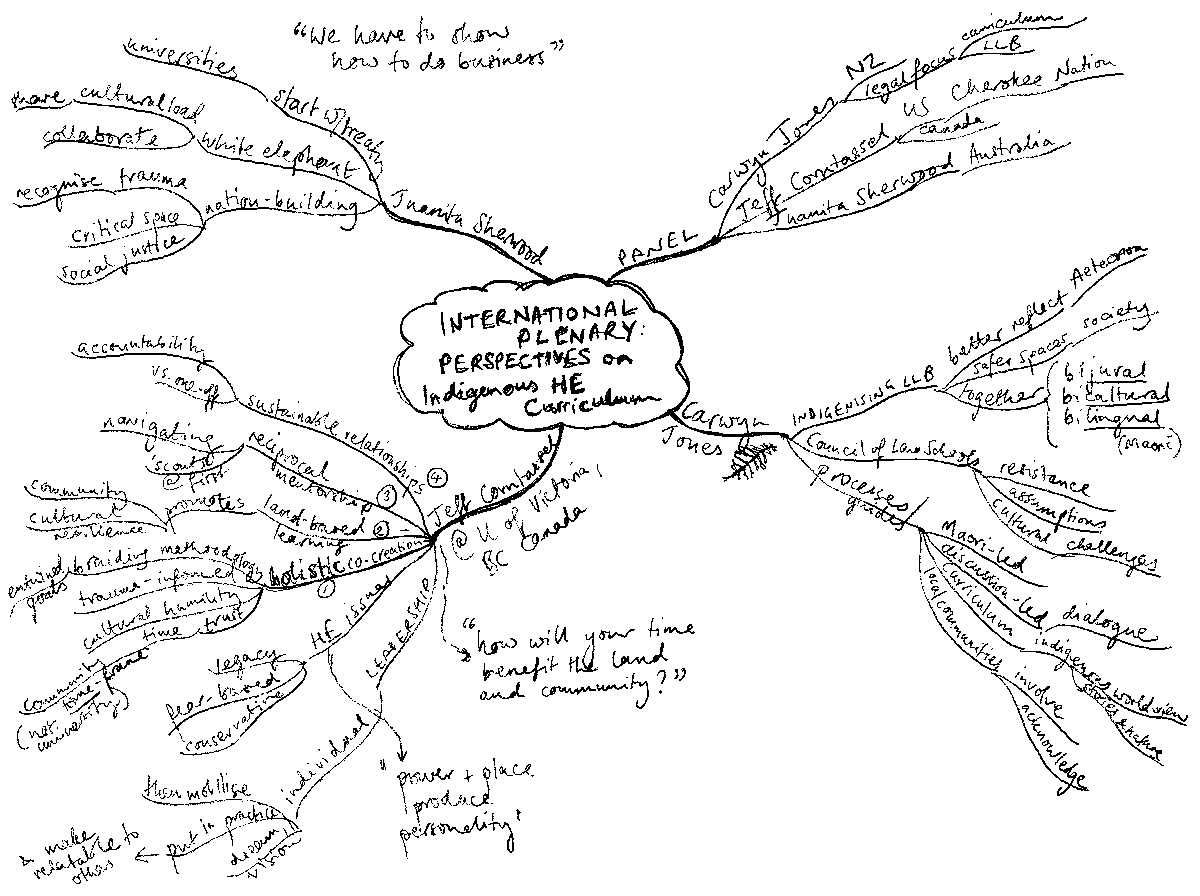 "We have to show
how to do business"
INTERNATIONAL
PLENARY:
PERSPECTIVES on
Indigenous HE
Curriculum
PANEL
Carwyn Jones
NZ
legal focus
curriculum
LLB
Jeff Corntassel
US Cherokee Nation
Canada
Juanita Sherwood Australia
Carwyn
Jones
INDIGENISING LLB
better reflect Aotearoa
safer spaces society
together
bijural
bicultural
bilingual
(Maori)
Council of Law Schools
resistance
assumptions
cultural challenges
processes/
guides
Maori-led
discussion-led dialogue
curriculum
indigenous worldview
stories & nature
local communities
involve
acknowledge
Jeff Corntassel
@ U of Victoria,
BC Canada
"how will your time
benefit the land
and community?"
LEADERSHIP
individual
than mobilise
put in practice
& make
relatable to
others
dream,
vision
HE issues
legacy
fear-based
conservative
"power + place
produce
personality"
holistic co-creation
1
braiding methodology
entwined
goals
trauma-informed
cultural humility
time, trust
community
time-frame
(not
university)
land-based
learning
2
promotes
community
cultural
resilience
reciprocal
mentorship
3
navigating
'scouts'
@ first
sustainable relationships
4
accountability
vs one-off
Juanita Sherwood
start w/ treaty
universities
white elephant
share cultural load
collaborate
nation-building
recognise trauma
critical space
social justice